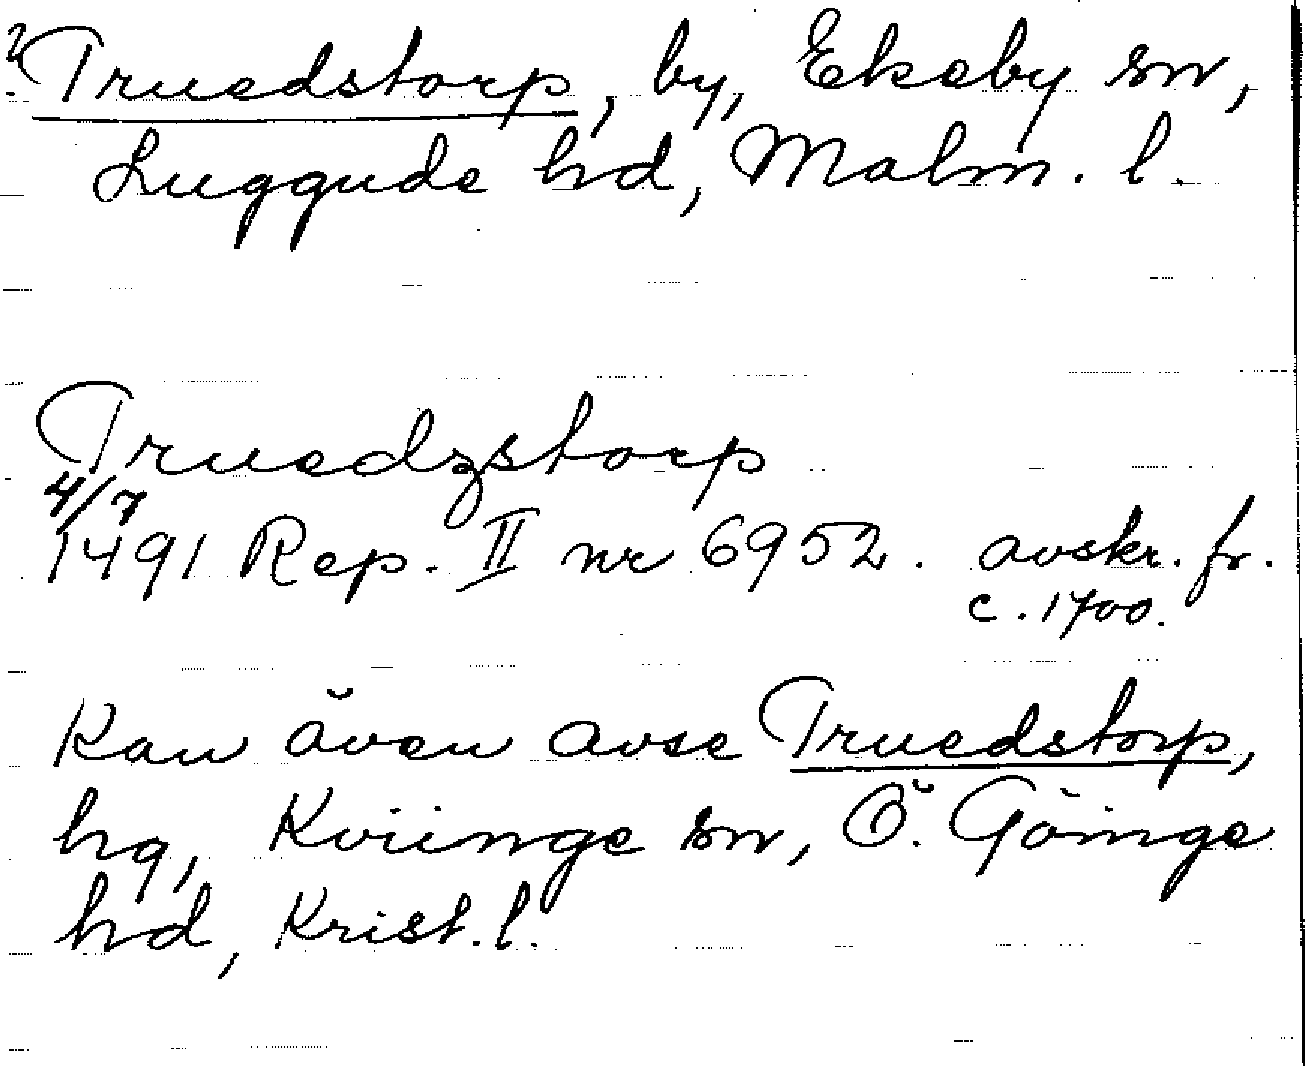 ? Truedstorp, by, Ekeby sn,
Luggude hd, Malm. l.
Truedzstorp
4/7
1491 Rep. II nr 6952. avskr. fr.
c. 1700.
Kan även avse Truedstorp,
hg, Kviinge sn, Ö. Göinge
hd, Krist. l.